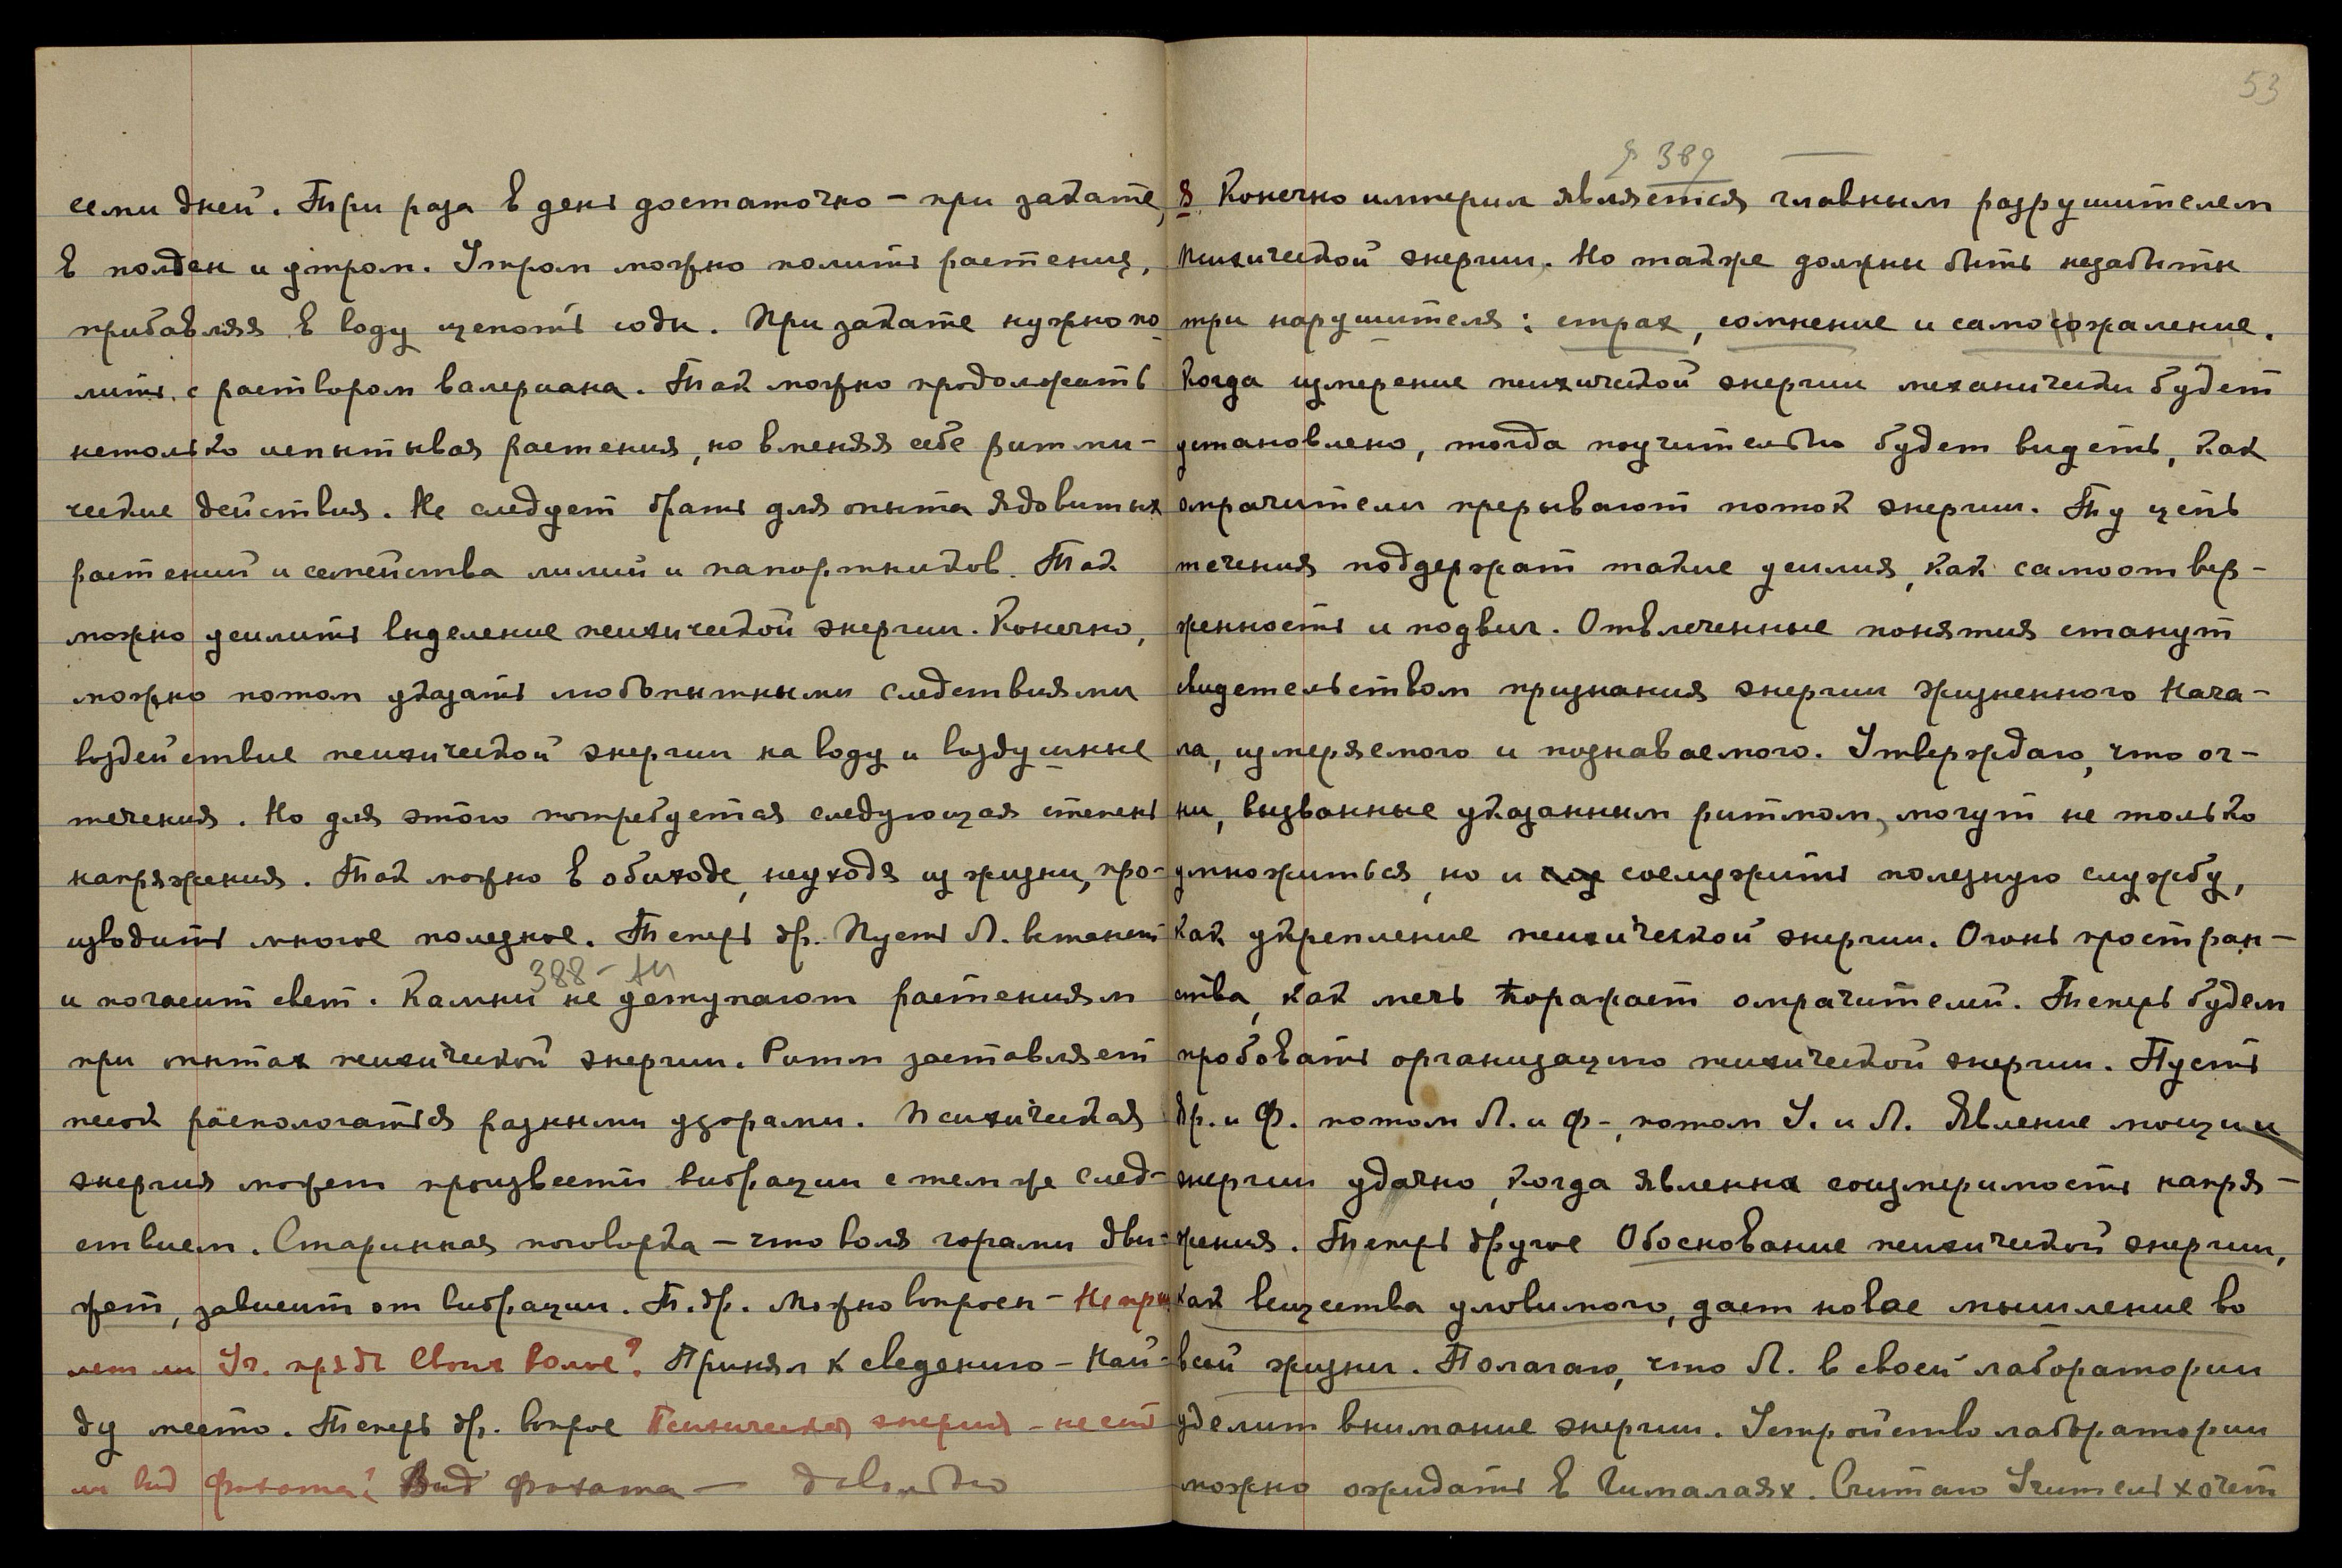 семи дней. Три раза в день достаточно – при закате,
в полден и утром. Утром можно полить растения,
прибавляя в воду щепоть соды. При закате нужно по
лить с раствором валериана. Так можно продолжать
нетолько испытывая растения, но вменяя себе ритми-
ческие действия. Не следует брать для опыта ядовитых
растений и семейства лилий и папортников. Так
можно усилить выделение психической энергии. Конечно,
можно потом указать любопытными следствиями
воздействие психической энергии на воду и воздушные
течения. Но для этого потребуется следующая степень
напряжения. Так можно в обиходе, неуходя из жизни, про-
изводить многое полезное. Теперь др. Пусть Л. встанет
388 –
и погасит свет. Камни не уступают растениям
при опытах психической энергии. Ритм заставляет
песок распологаться разными узорами. Психическая
энергия может произвести вибрации с тем же след-
ствием. Старинная поговорка – что воля горами дви-
жет, зависит от вибрации. Т. др. Можно вопросы – Не при
лет ли Уч. прядь Своих Волос? Принял к сведению – Най-
ду место. Теперь др. вопрос Психическая энергия – не есть
ли вид фохата? Вид фохата — довольно
53
§ 389
Я. Конечно империл является главным разрушителем
психической энергии. Но также должны быть незабыты
три нарушителя: страх, сомнение и самосожаление.
Когда измерение психической энергии механически будет
установлено, тогда поучительно будет видеть, как
омрачители прерывают поток энергии. Ту цепь
течения поддержат такие усилия, как самоотвер-
женность и подвиг. Отвлеченные понятия станут
свидетельством признания энергии жизненного Нача-
ла, измеряемого и познаваемого. Утверждаю, что ог-
ни, вызванные указанным ритмом, могут не только
умножиться, но и сослужить полезную службу,
как укрепление психической энергии. Огонь простран-
ства, как меч поражает омрачителей. Теперь будем
пробовать организацию психической энергии. Пусть
Др. и Ф. потом Л. и Ф-, потом У. и Л. Явление мощи и
энергии удачно, когда явленна соизмеримость напря-
жения. Теперь другое Обоснование психической энергии,
как вещества уловимого, дает новое мышление во
всей жизни. Полагаю, что Л. в своей лаборатории
уделит внимание энергии. Устройство лаборатории
можно ожидать в Гималаях. Считаю Учитель хочет